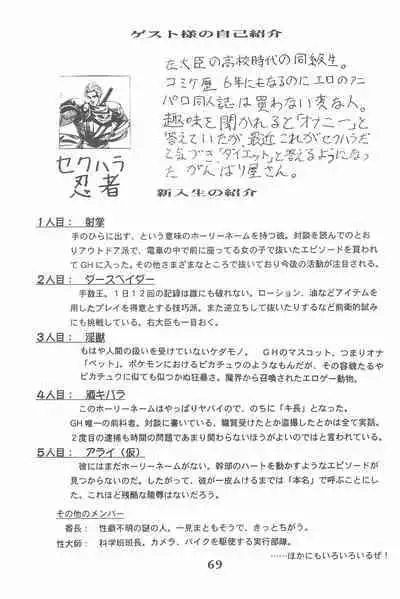 ゲスト様の自己紹介
左大臣の高校時代の同級生。
コミケ歴6年にもなるのにエロのアニ
パロ同人誌は買わない変な人。
趣味を聞かれると「オナニー」と
答えていたが、最近これがセクハラだ
と気づき「ダイエット」と答えるようになっ
たがんばり屋さん。
セクハラ
忍者
新入生の紹介
1人目： 射掌
手のひらに出す、という意味のホーリーネームを持つ彼。対談を読んでのとお
りアウトドア派で、電車の中で前に座ってる女の子で抜いたエピソードを買われ
てGHに入った。その他さまざまなところで抜いており今後の活動が注目される。
2人目： ダースベイダー
手数王。1日12回の記録は誰にも破れない。ローション、油などアイテムを
用したプレイを得意とする技巧派。また逆立ちして抜いたりするなど前衛的試み
にも挑戦している。右大臣も一目おく。
3人目： 淫獣
もはや人間の扱いを受けていないケダモノ。 GHのマスコット、つまりオナ
「ペット」。ポケモンにおけるピカチュウのようなもんだが、その容貌たるや
ピカチュウに似ても似つかぬ狂暴さ。魔界から召喚されたエロゲー動物。
4人目： 酒キバラ
このホーリーネームはやっぱりヤバイので、のちに「キ長」となった。
GH唯一の前科者。対談に書いている、職質受けたとか盗撮したとかは全て実話。
2度目の逮捕も時間の問題であまり関わらないほうがよいのではと言われている。
5人目： アライ（仮）
彼にはまだホーリーネームがない。幹部のハートを動かすようなエピソードが
見つからないのだ。したがって、彼が一皮むけるまでは「本名」で呼ぶことにし
た、これほど残酷な陵辱はないだろう。
その他のメンバー
番長： 性癖不明の謎の人。一見まともそうで、きっとちがう。
性大師： 科学班班長。カメラ、バイクを駆使する実行部隊。
……ほかにもいろいろいるぜ！
69